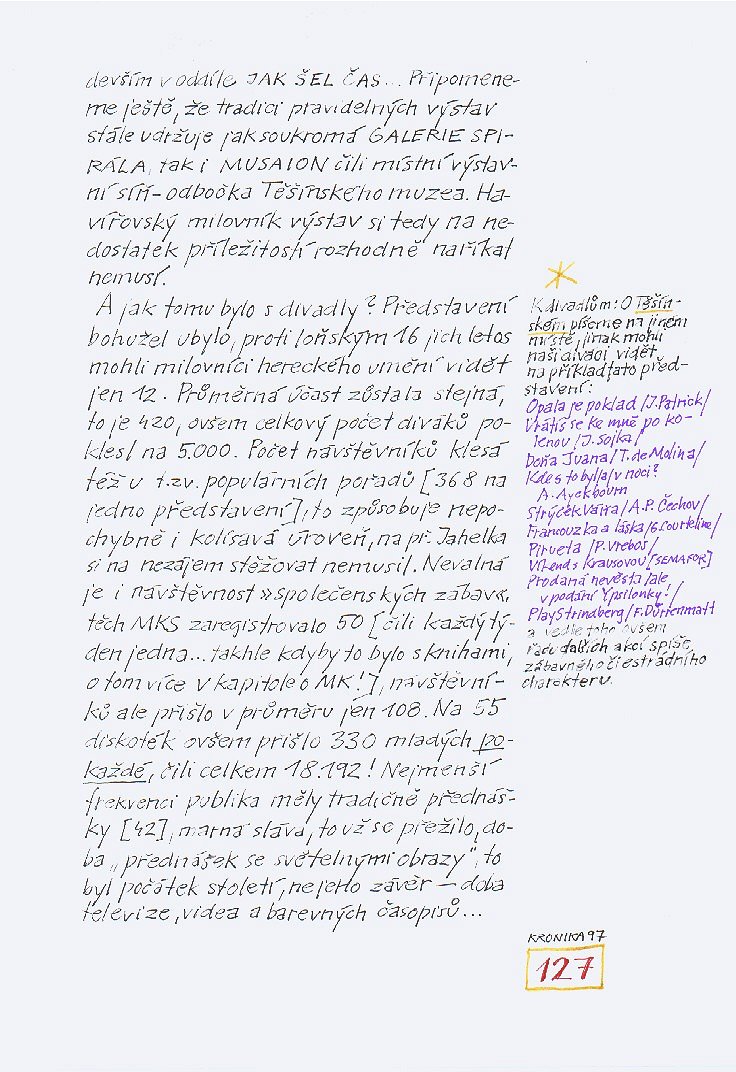 devším v oddíle JAK ŠEL ČAS... Připomene-
me ještě, že tradici pravidelných výstav
stále udržuje jak soukromá GALERIE SPI-
RÁLA, tak i MUSAION čili místní výstav-
ní síň - odbočka Těšínského muzea. Ha-
vířovský milovník výstav si tedy na ne-
dostatek příležitostí rozhodně naříkat
nemusí.
A jak tomu bylo s divadly? Představení
bohužel ubylo, proti loňským 16 jich letos
mohli milovníci hereckého umění vidět
jen 12. Průměrná účast zůstala stejná,
to je 420, ovšem celkový počet diváků po-
klesl na 5.000. Počet návštěvníků klesá
též u t.zv. populárních pořadů [368 na
jedno představení], to způsobuje nepo-
chybně i kolísavá úroveň, na př. Jahelka
si na nezájem stěžovat nemusil. Nevalná
je i návštěvnost »společenských zábav«,
těch MKS zaregistrovalo 50 [čili každý tý-
den jedna... takhle kdyby to bylo s knihami,
o tom více v kapitole o MK!], návštěvní-
ků ale přišlo v průměru jen 108. Na 55
diskoték ovšem přišlo 330 mladých po-
každé, čili celkem 18.192! Nejmenší
frekvenci publika měly tradičně přednáš-
ky [42], marná sláva, to už se přežilo, do-
ba „přednášek se světelnými obrazy", to
byl počátek století, ne jeho závěr — doba
televize, videa a barevných časopisů...
*
K divadlům: O Těšín-
ském píšeme na jiném
místě, jinak mohli
naši diváci vidět
na příklad tato před-
stavení:
Opala je poklad /J. Patrick/
Vrátíš se ke mně po ko-
lenou /J. Sojka/
Doña Juana /T. de Molina/
Kde s to byl/a/ v noci?
A. Ayckbourn
Strýček Váňa /A. P. Čechov/
Francouzka a láska /G. Courteline/
Pirueta /P. Vrebos/
Víkend s Krausovou [SEMAFOR]
Prodaná nevěsta /ale
v podání Ypsilonky!/
Play Strindberg /F. Dürrenmatt
a vedle toho ovšem
řadu dalších akcí spíše
zábavného či estrádního
charakteru.
KRONIKA 97
127